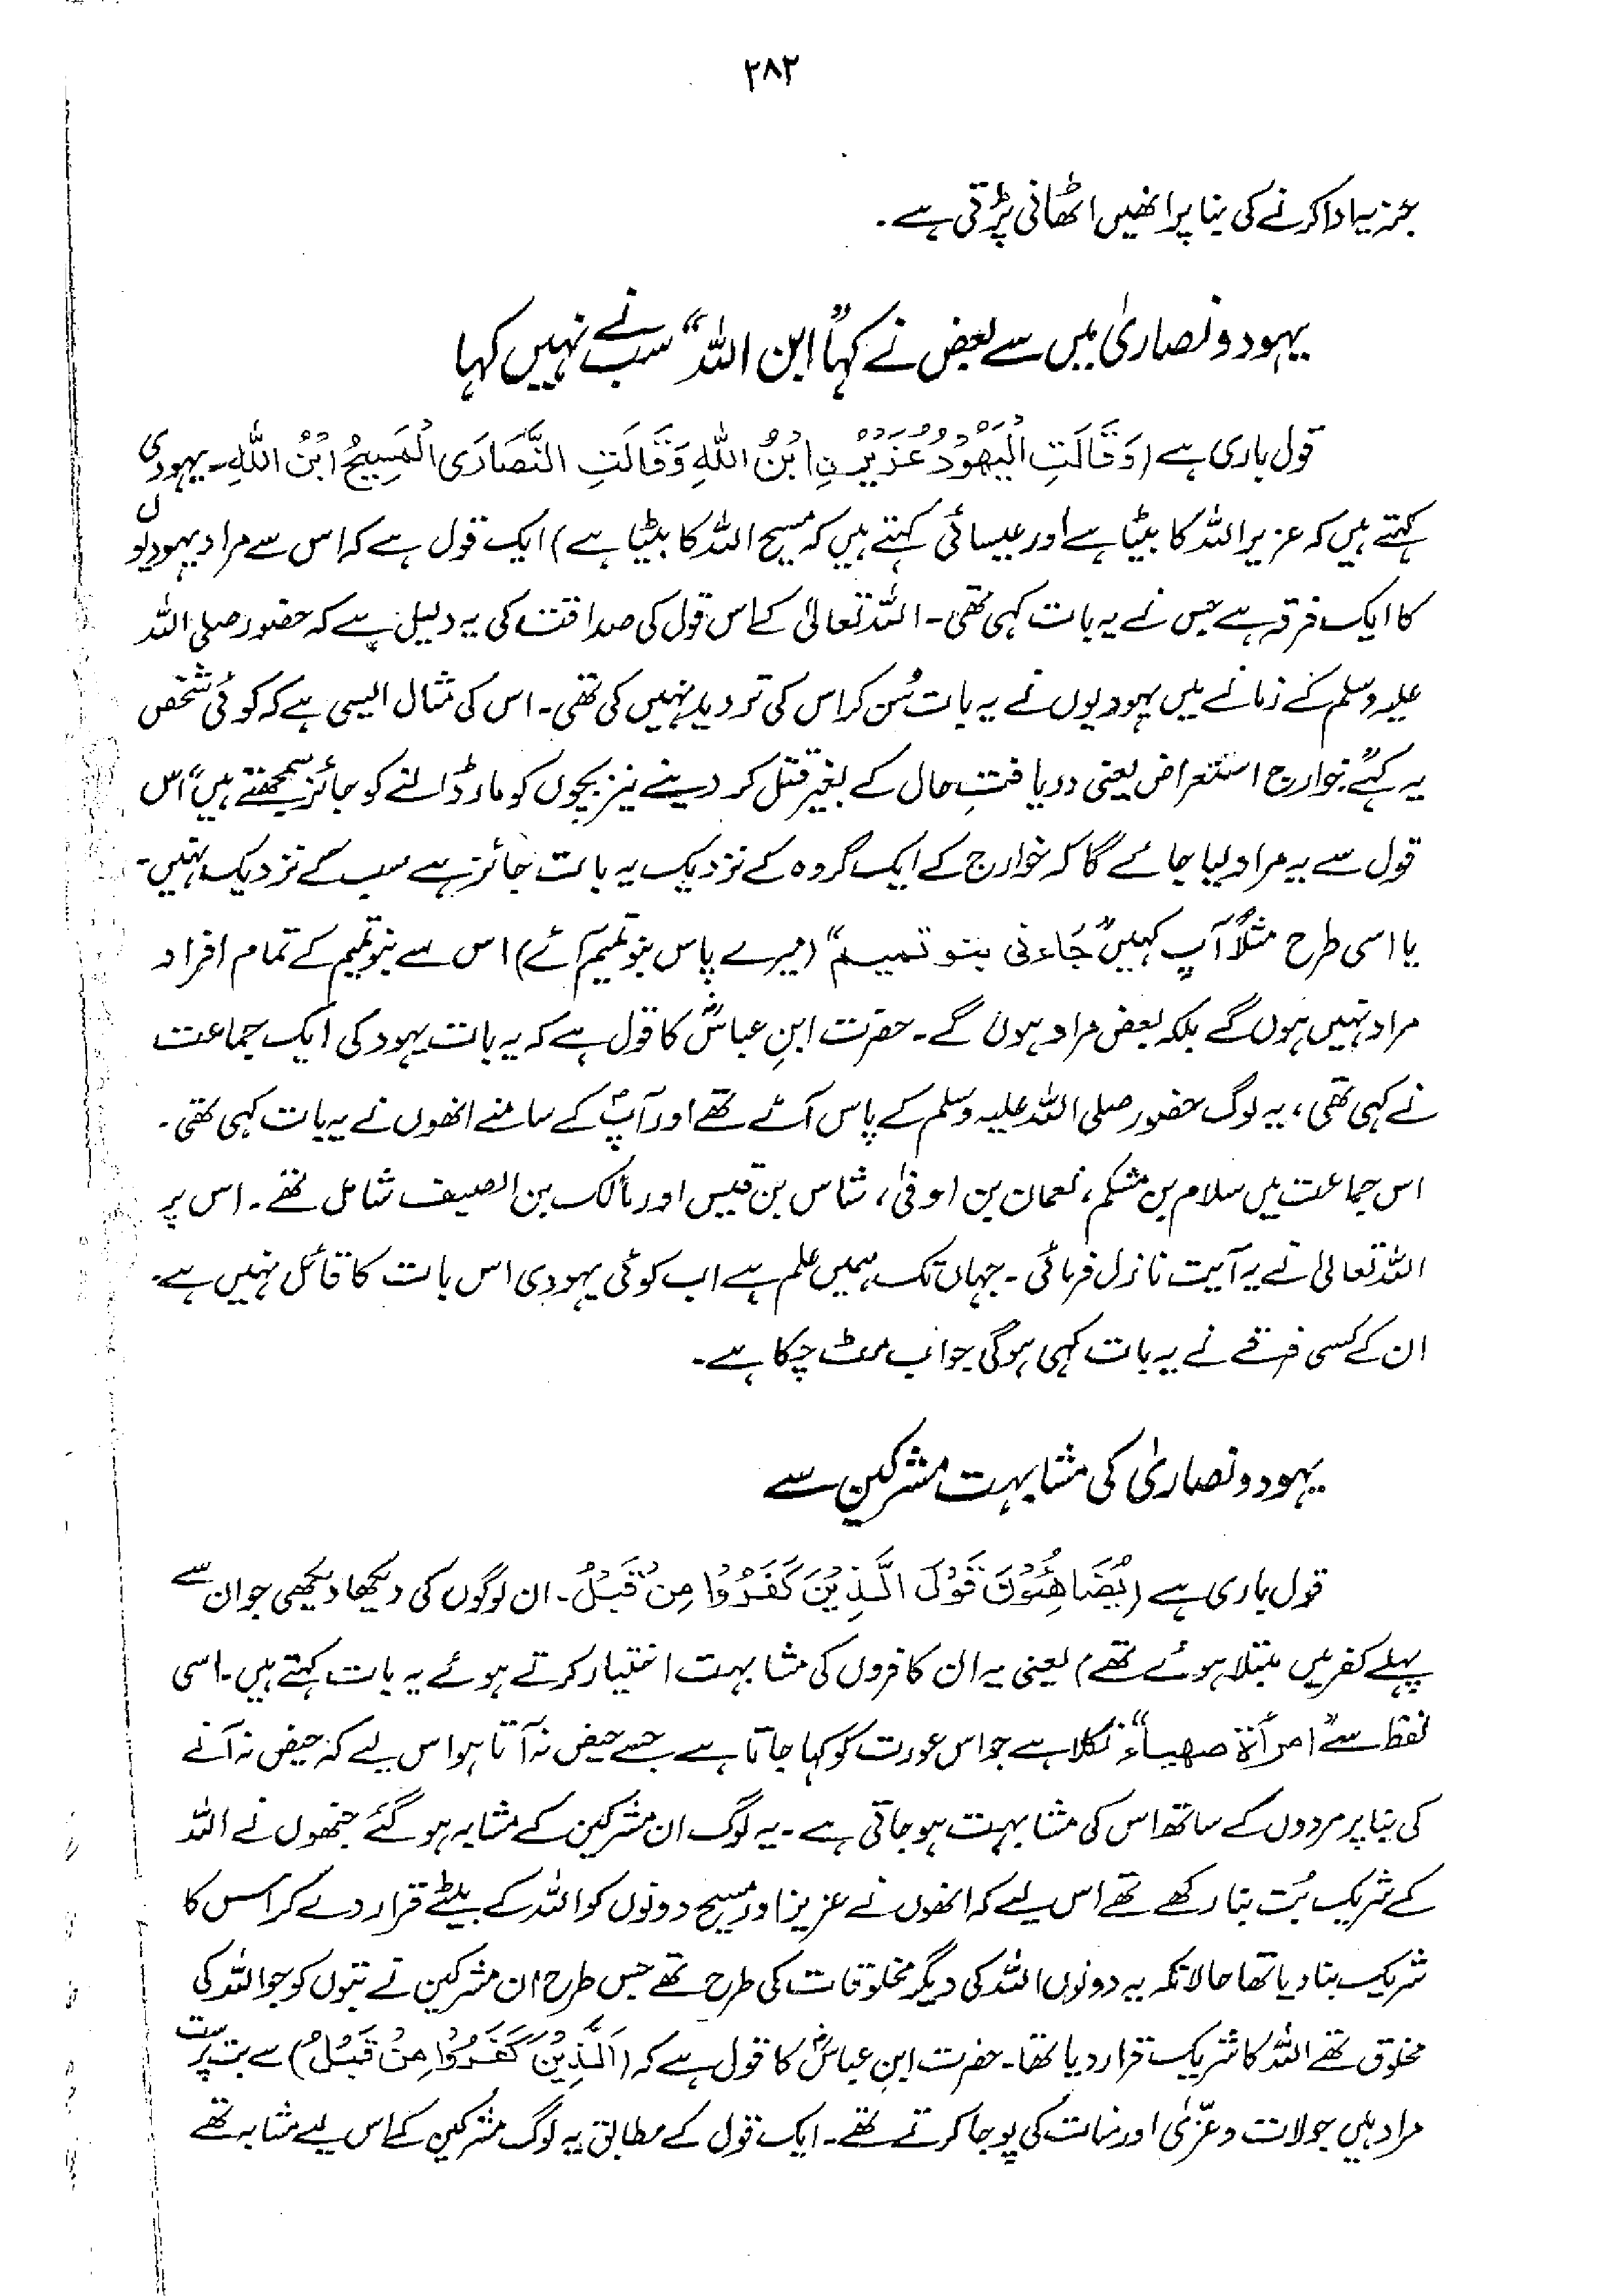 ۲۸۲
جزیہ ادا کرنے کی بنا پر انھیں اٹھانی پڑتی ہے۔
یہود و نصاریٰ میں سے بعض نے کہا "ابن اللہ" سب نے نہیں کہا
قول باری ہے (وَقَالَتِ الْيَهُوْدُ عُزَيْرُ نِ ابْنُ اللّٰهِ وَقَالَتِ النَّصَارَى الْمَسِيحُ ابْنُ اللّٰهِ۔ یہودی
کہتے ہیں کہ عزیر اللہ کا بیٹا ہے اور عیسائی کہتے ہیں کہ مسیح اللہ کا بیٹا ہے) ایک قول ہے کہ اس سے مراد یہودیوں
کا ایک فرقہ ہے جس نے یہ بات کہی تھی۔ اللہ تعالیٰ کے اس قول کی صداقت کی یہ دلیل ہے کہ حضور صلی اللہ
علیہ وسلم کے زمانے میں یہودیوں نے یہ بات سُن کر اس کی تردید نہیں کی تھی۔ اس کی مثال ایسی ہے کہ کوئی شخص
یہ کہے "خوارج استعراض یعنی دریافتِ حال کے بغیر قتل کر دینے نیز بچوں کو مار ڈالنے کو جائز سمجھتے ہیں" اس
قول سے یہ مراد لیا جائے گا کہ خوارج کے ایک گروہ کے نزدیک یہ بات جائز ہے سب کے نزدیک نہیں۔
یا اسی طرح مثلاً آپ کہیں "جَاءنی بنو تمیم" (میرے پاس بنو تمیم آئے) اس سے بنو تمیم کے تمام افراد
مراد نہیں ہوں گے بلکہ بعض مراد ہوں گے۔ حضرت ابنِ عباسؓ کا قول ہے کہ یہ بات یہود کی ایک جماعت
نے کہی تھی، یہ لوگ حضور صلی اللہ علیہ وسلم کے پاس آئے تھے اور آپؐ کے سامنے انھوں نے یہ بات کہی تھی۔
اس جماعت میں سلام بن مشکم، نعمان بن اوفیٰ، شاس بن قیس اور مالک بن الصیف شامل تھے۔ اس پر
اللہ تعالیٰ نے یہ آیت نازل فرمائی۔ جہاں تک ہمیں علم ہے اب کوئی یہودی اس بات کا قائل نہیں ہے۔
ان کے کسی فرقے نے یہ بات کہی ہوگی جو اب مٹ چکا ہے۔
یہود و نصاریٰ کی مشابہت مشرکین سے
قول باری ہے (يُضَاهِئُوْنَ قَوْلَ الَّذِيْنَ كَفَرُوْا مِنْ قَبْلُ۔ ان لوگوں کی دیکھا دیکھی جو ان سے
پہلے کفر میں مبتلا ہوئے تھے) یعنی یہ ان کافروں کی مشابہت اختیار کرتے ہوئے یہ بات کہتے ہیں۔ اسی
لفظ سے "امرأۃ ضھیاء" نکلا ہے جو اس عورت کو کہا جاتا ہے جسے حیض نہ آتا ہو اس لیے کہ حیض نہ آنے
کی بنا پر مردوں کے ساتھ اس کی مشابہت ہو جاتی ہے۔ یہ لوگ ان مشرکین کے مشابہ ہو گئے جنھوں نے اللہ
کے شریک بُت بنا رکھے تھے اس لیے کہ انھوں نے عزیز اور مسیح دونوں کو اللہ کے بیٹے قرار دے کر اس کا
شریک بنا دیا تھا حالانکہ یہ دونوں اللہ کی دیگر مخلوقات کی طرح تھے جس طرح ان مشرکین نے بتوں کو جو اللہ کی
مخلوق تھے اللہ کا شریک قرار دیا تھا۔ حضرت ابنِ عباسؓ کا قول ہے کہ (اَلَّذِيْنَ كَفَرُوْا مِنْ قَبْلُ) سے بت پرست
مراد ہیں جو لات و عزّیٰ اور منات کی پوجا کرتے تھے۔ ایک قول کے مطابق یہ لوگ مشرکین کے اس لیے مشابہ تھے